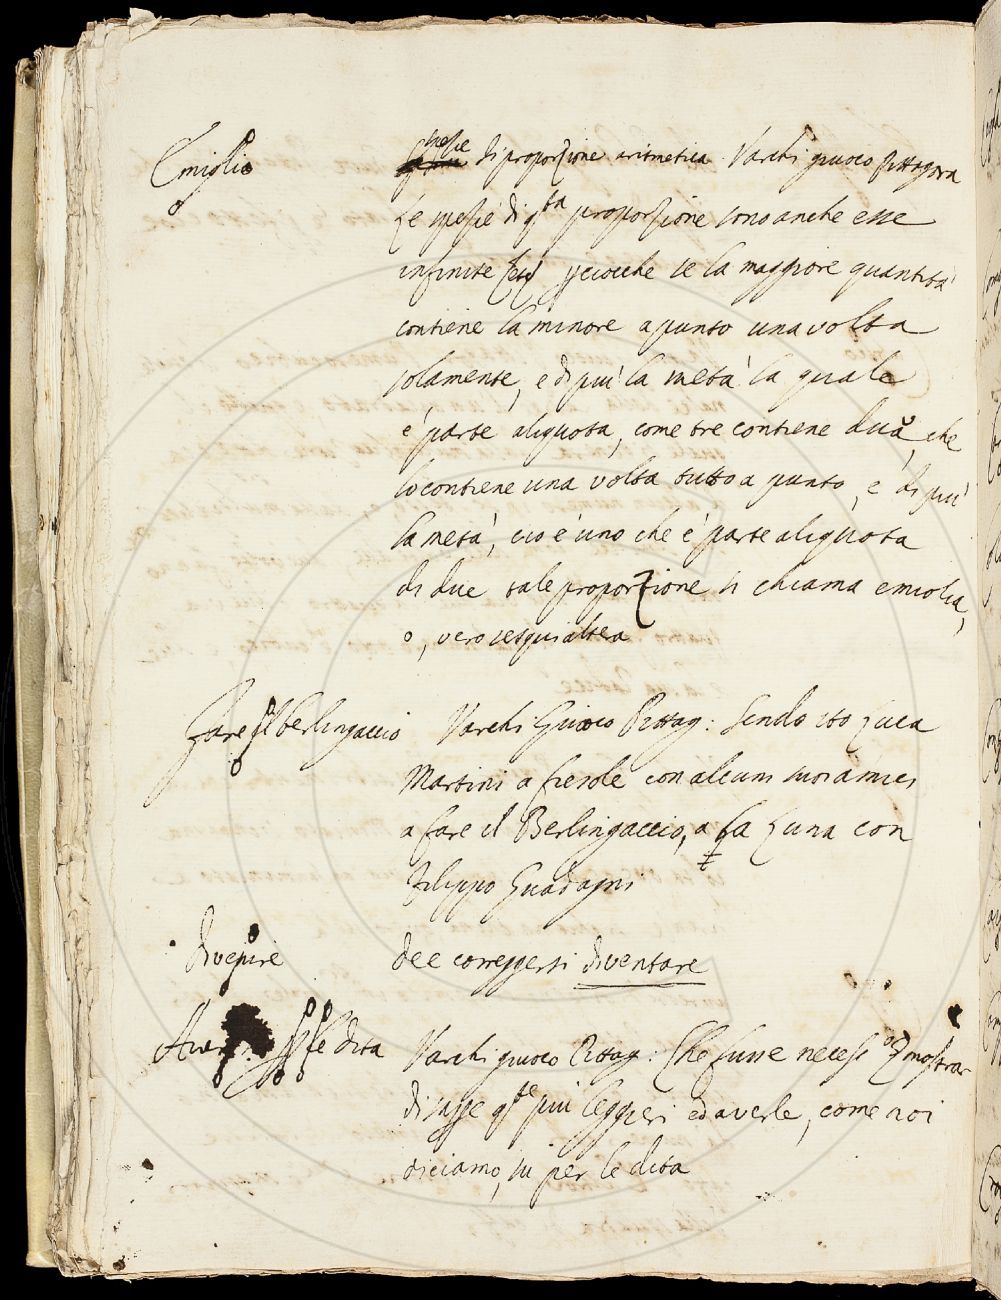 Emiglio
spezie di proporzione aritmetica. Varchi giuoco Pittagora
Le spezie di qta proporzione sono anche esse
infinite perciocche se la maggiore quantità
contiene la minore apunto una volta
solamente, e di più la metà la quale
è parte aliquota, come tre contiene dua, che
lo contiene una volta tutto a punto, e di più
la metà, cio è uno che è parte aliquota
di due tale proporzione si chiama emiolia,
o, vero sesquialtera
Fare il berlingaccio Varchi Giuoco Pittag: Sendo ito Luca
Martini a fiesole con alcuni suoi amici
a fare il Berlingaccio, a la Luna con
Filippo Guadagni
divenire dee correggersi diventare
Aver le dita Varchi giuoco Pittag: Che fusse necess° mostrar
di saper qte più leggieri ed averle, come noi
diciamo, su per le dita